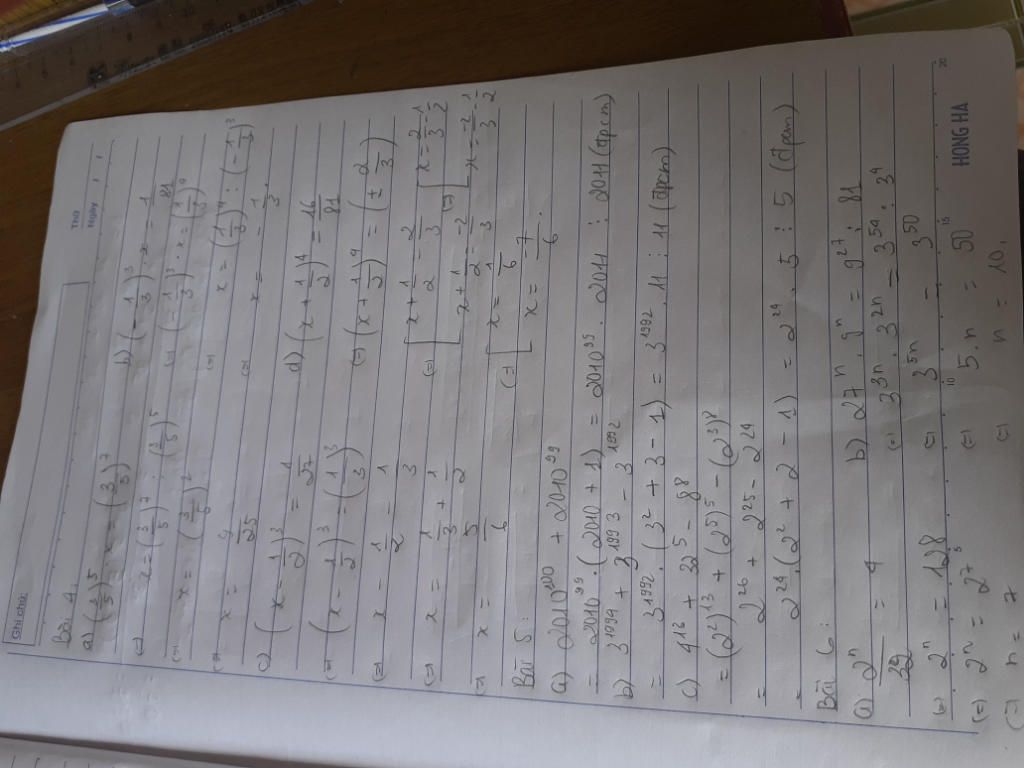 Ghi chú:
Thứ
Ngày
Bài 4
a) (3/5)^5 . x = (3/5)^7
(=) x = (3/5)^7 : (3/5)^5
(=) x = (3/5)^2
(=) x = 9/25
b) (-1/3)^3 . x = 1/81
(=) (-1/3)^3 . x = (1/3)^4
(=) x = (1/3)^4 : (-1/3)^3
(=) x = -1/3.
c) (x - 1/2)^3 = 1/27
(=) (x - 1/2)^3 = (1/3)^3
(=) x - 1/2 = 1/3
(=) x = 1/3 + 1/2
(=) x = 5/6
d) (x + 1/2)^4 = 16/81
(=) (x + 1/2)^4 = (± 2/3)
(=) [ x + 1/2 = 2/3 (=) [ x = 2/3 - 1/2
x + 1/2 = -2/3 x = -2/3 - 1/2
(=) [ x = 1/6
x = -7/6.
Bài 5:
a) 2010^100 + 2010^99
= 2010^99 . (2010 + 1) = 2010^99 . 2011 ⋮ 2011 (đpcm)
b) 3^1994 + 3^1993 - 3^1992
= 3^1992 . (3^2 + 3 - 1) = 3^1992 . 11 ⋮ 11 (đpcm)
c) 4^13 + 32^5 - 8^8
= (2^2)^13 + (2^5)^5 - (2^3)^8
= 2^26 + 2^25 - 2^24
= 2^24 . (2^2 + 2 - 1) = 2^24 . 5 ⋮ 5 (đpcm)
Bài 6:
a) 2^n/32 = 4
(=) 2^n = 128
(=) 2^n = 2^7
(=) n = 7
b) 27^n . 9^n = 9^27 : 81
(=) 3^3n . 3^2n = 3^54 : 3^4
(=) 3^5n = 3^50
(=) 5.n = 50
(=) n = 10.
5 10 15 20
HONG HA